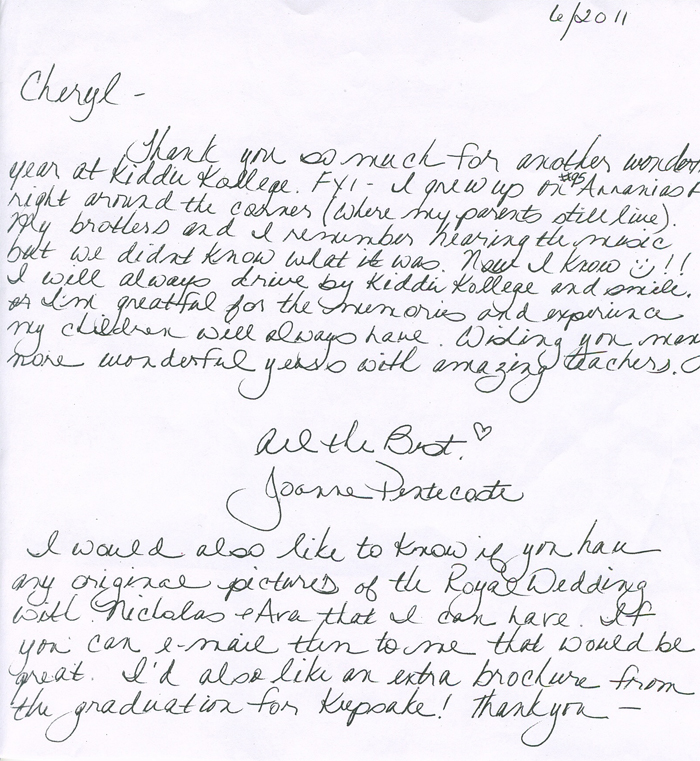 6/2011
Cheryl -
Thank you so much for another wonder
year at Kiddie Kollege. FYI - I grew up on #95 Annanias
right around the corner (where my parents still live).
My brothers and I remember hearing the music
but we didnt know what it was. Now I know ☺!!
I will always drive by Kiddie Kollege and smile.
I'm greatful for the memories and experience
my children will always have. Wishing you man
more wonderful years with amazing teachers.
All the Best. ♡
Joanne Pentecoste
I would also like to know if you have
any original pictures of the Royal Wedding
with Nicholas & Ava that I can have. If
you can e-mail them to me that would be
great. I'd also like an extra brochure from
the graduation for Keepsake! Thank you -